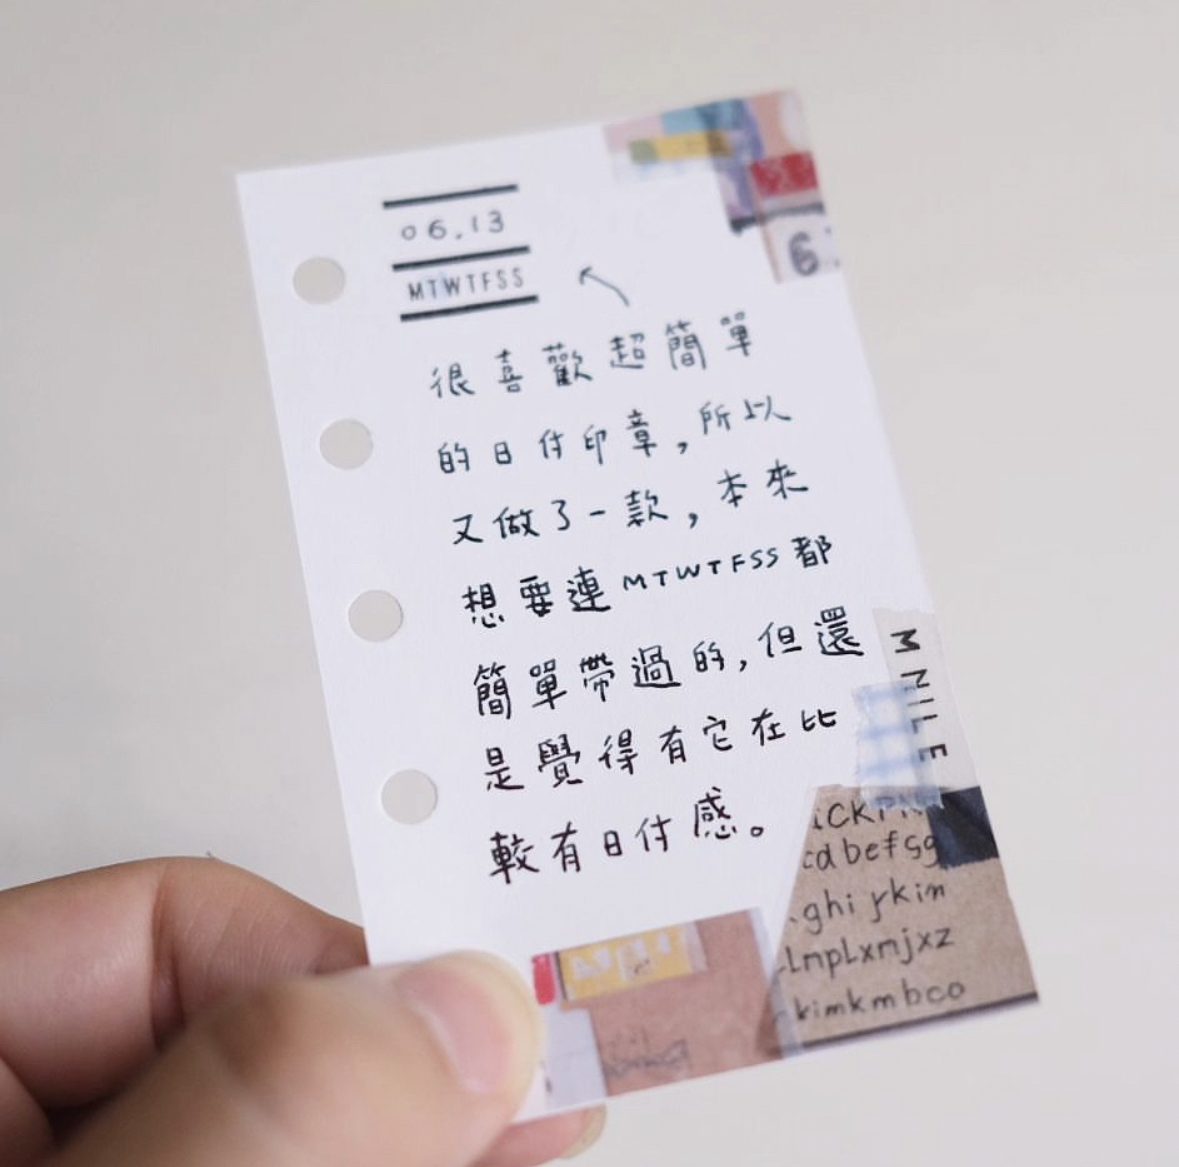 06.13
MTWTFSS
6
很喜歡超簡單
的日付印章,所以
又做了一款,本來
想要連MTWTFSS都
簡單帶過的,但還
是覺得有它在比
較有日付感。
MNILE
cdbefsg
ghi
LnpLxmjxz
kimkmbco